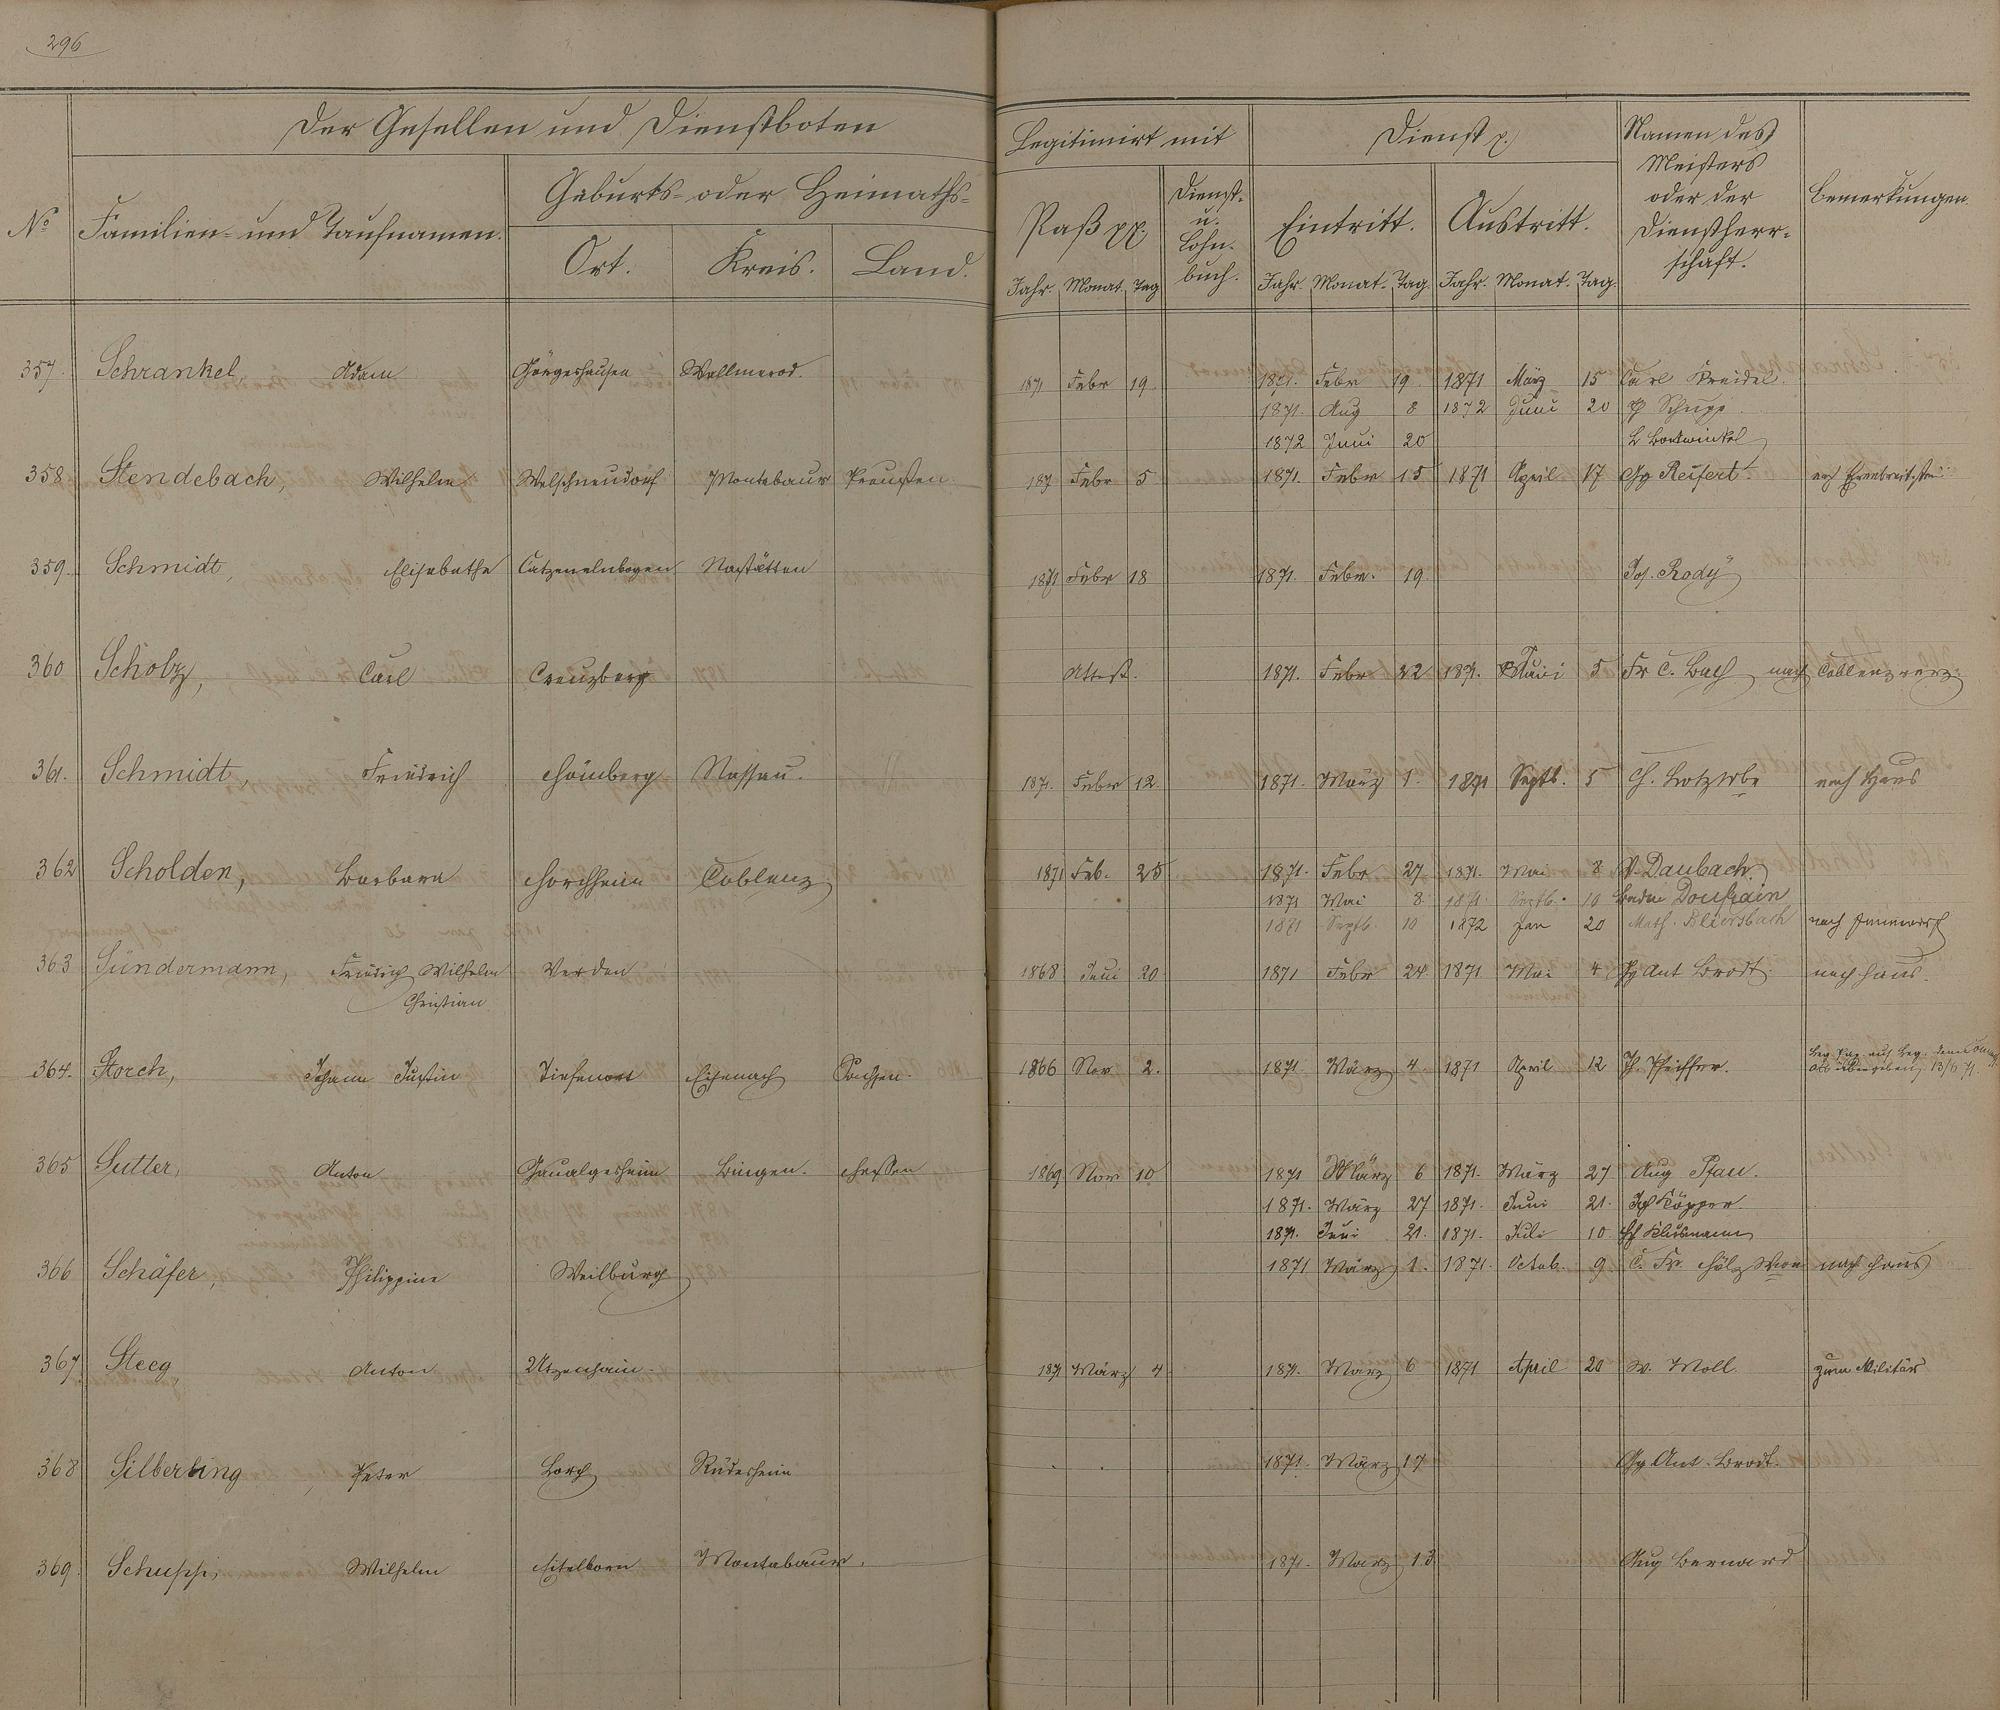 296
Der Gesellen und Dienstboten
Legitimirt mit
Dienst p.
Namen des Meisters oder der Dienstherrschaft.
Bemerkungen.
No
Familien- und Taufnamen.
Geburts- oder Heimaths-
Ort. Kreis. Land.
Paß pp.
Dienst- u. Lohn- buch.
Eintritt. Austritt.
Jahr. Monat. Tag Jahr. Monat. Tag. Jahr. Monat. Tag.
357. Schrankel, Adam Görgeshausen Wallmerod. 1871 Febr 19 1871. Febr 19 1871 März 15 Carl Kreidel.
1871. Aug 8 1872 Juni 20 Schupp.
1872 Juni 20
358. Stendebach, Wilhelm Welschneudorf Montabaur Preussen 187 Febr 5 1871. Febr 15 1871 April 17 Gg Reifert nach Ehrenbreitstein
359. Schmidt, Elisabethe Catzenelnbogen Nastätten 1871 Febr 18 1871. Febr. 19 Jos. Rody
360 Scholz, Carl Creuzberg Attest. 1871. Febr 22 1871. Juni 5 Fr C. Bach nach Coblenz verz.
361. Schmidt, Friedrich Hömberg Nassau. 1871. Febr 12. 1871. März 1. 1871 Septb. 5 nach Haus
362 Scholden, Barbara Horchheim Coblenz 1871 Feb. 25 1871. Febr 27 1871. Mai 8 W. Daubach.
1871 Mai 8 1871. Septb. 10
1871 Septb. 10 1872 Jan 20 Math. nach
363 Sündermann, Friedrich Wilhelm Verden 1868 Juni 20 1871 Febr 24 1871 Mai 4 Gg Ant Brodt. nach Haus.
Christian
364. Storch, Johann Justin Tiefenort Eisenach Sachsen. 1866 Nov 2. 1871. März 4 1871 April 12 Pfeiffer. 13/6 71.
365 Sutter, Anton Gaualgesheim Bingen. Hessen 1869 Nov 10 1871 März 6 1871. März 27 Aug Pfau.
1871. März 27 1871. Juni 21. Küpper.
1871. Juni 21. 1871. Juli 10 Klusmann
366 Schäfer, Philippine Weilburg 1871 März 1. 1871. Octob. 9 C. Fr. nach Haus
367 Steeg, Anton Utzenhain. 1871 März 4 1871. März 6 1871 April 20 W. Moll. zum Militär
368 Silberling, Peter Lorch Rüdesheim 1871. März 17 Gg Ant. Brodt.
369. Schupp, Wilhelm Eitelborn Montabaur. 1871. März 13. Aug Bernard